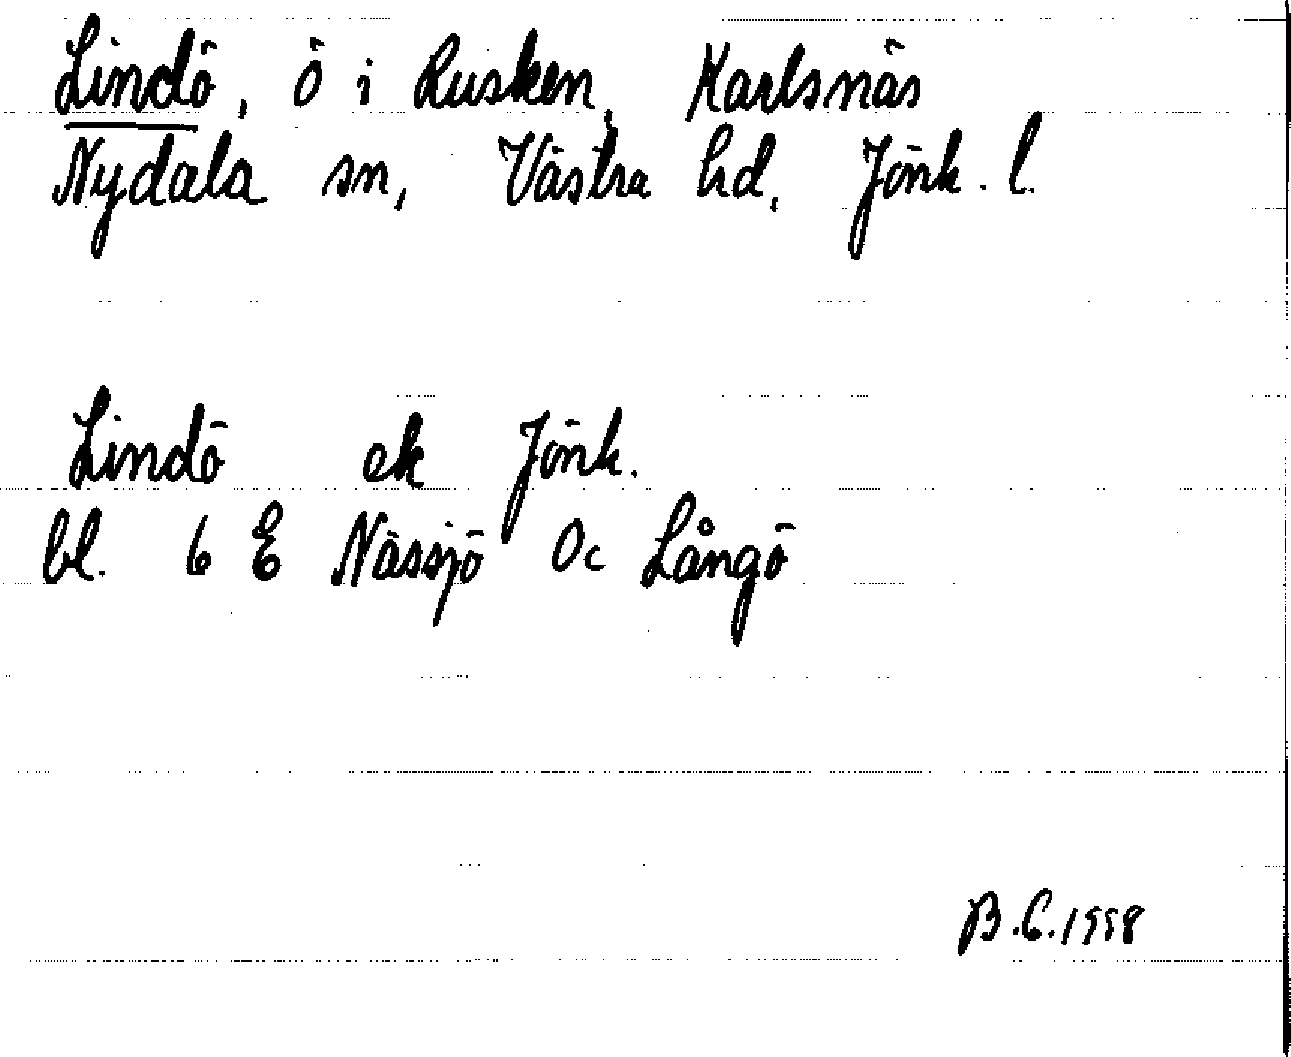 Lindö, ö i Rusken, Karlsnäs
Nydala sn, Västra hd, Jönk. l.
Lindö ek Jönk.
bl. 6 E Nässjö 0c Långö
B.C. 1998